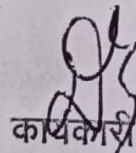 कार्यकारी